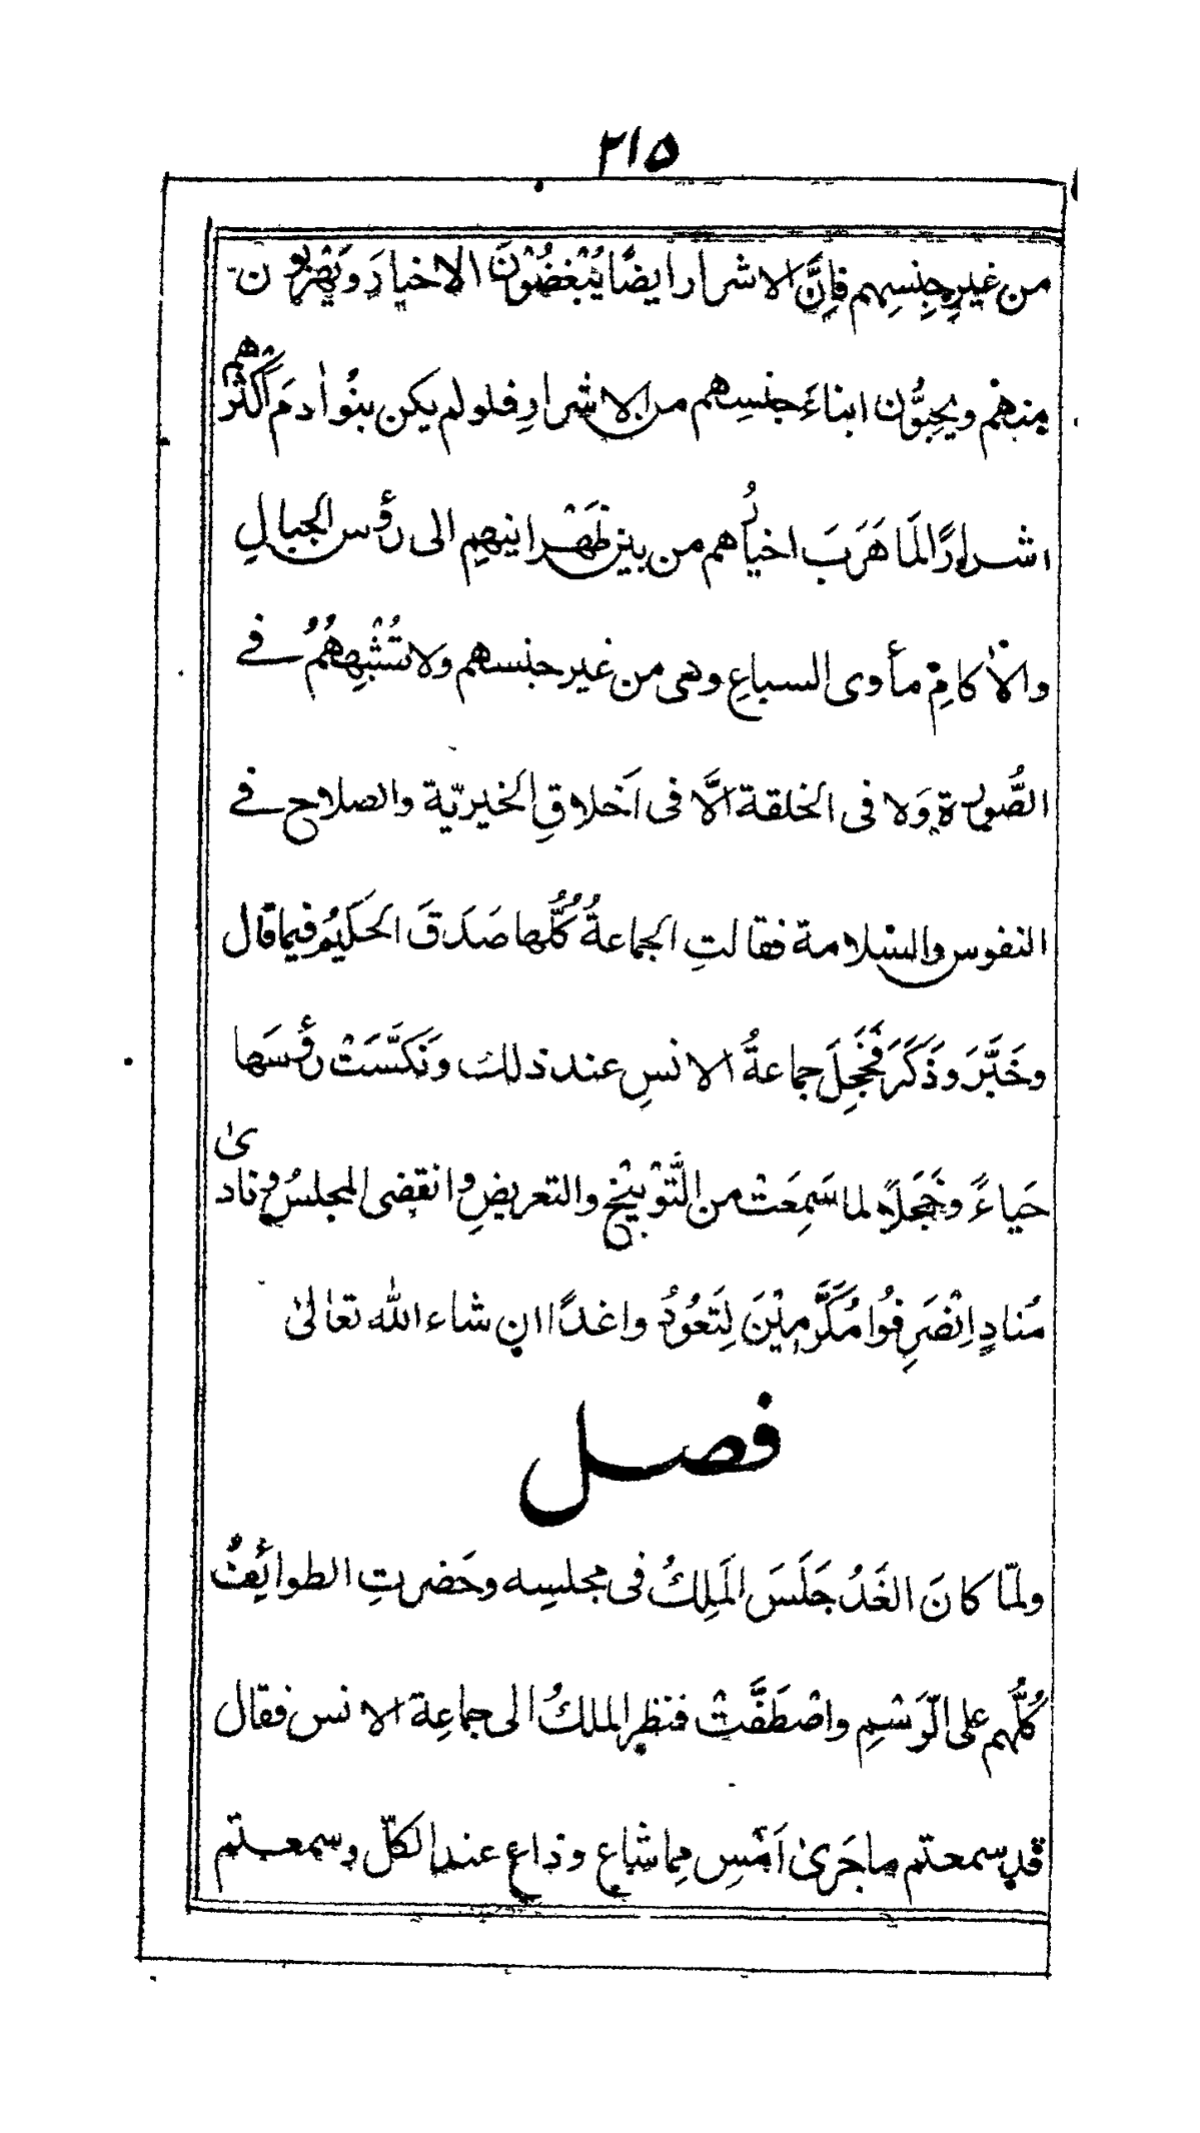 ٢١٥
من غيرِ جِنسِهم فاِنَّ الاشرار ايضًا يُبْغِضُوْنَ الاخيارَ ويَهْرِبُون
مِنهُم ويحِبُّون ابناءَ جِنسِهم من الاشرارِ فلو لم يكن بنُو اٰدمَ اَكْثَرُهم
اشرارًا لَمَا هَرَبَ اخيارُهم من بينِ ظَهْرانيهِم الى رؤُس الجبالِ
والاٰكامِ مأوى السباعِ وهى من غير جنسهم ولا تُشْبِهُهُم فے
الصُّورة وَلا فى الخلقة الَّا فى اَخلاقِ الخيريّة والصلاح فے
النفوس والسّلامة فقالتِ الجماعةُ كُلُّها صَدَقَ الحَكيمُ فيما قال
وخَبَّرَ وذَكَرَ فَخَجِلَ جماعةُ الانسِ عند ذلك ونَكَسَّتْ رؤُسَها
حَياءً وخَجَلًا لما سَمِعَتْ من التَّوْبيْخِ والتعريضِ وانقضى المجلسُ ونادىٰ
مُنادٍ اِنْصَرِفُوا مُكَرَّمِيْنَ لِتَعُوْدُوا غدًا ان شاء الله تعالىٰ
فصل
ولمّا كانَ الغَدُ جَلَسَ المَلِكُ فى مجلسِه وحَضرتِ الطوائِفُ
كُلُّهم على الرَّسْمِ واصْطَفَّتْ فنظر الملكُ الى جماعِة الانس فقال
قد سمعتم ما جَرىٰ اَمْسِ مِما شاع وذاع عند الكلّ وسمعتم